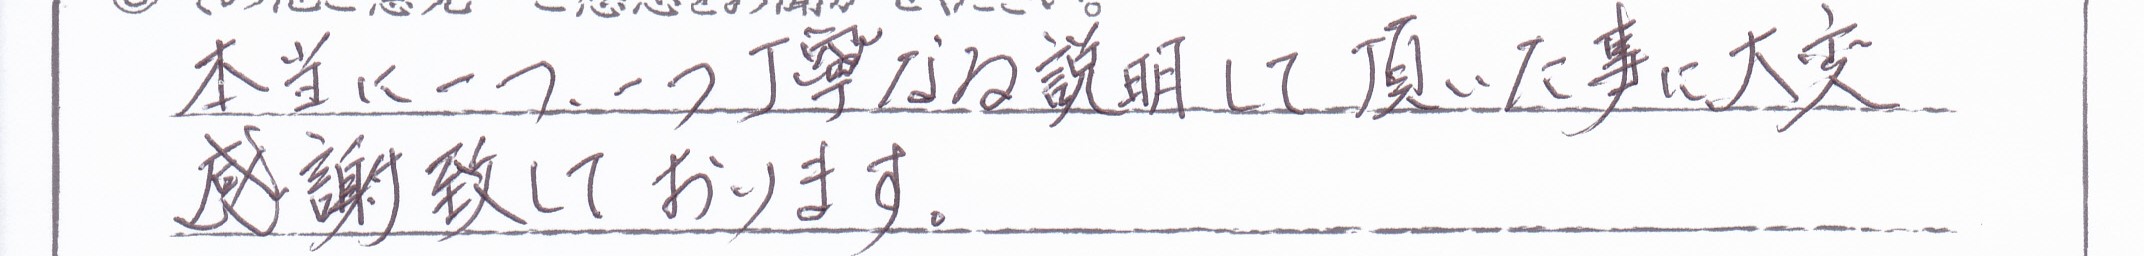 本当に一つ、一つ丁寧なる説明して頂いた事に大変
感謝致しております。